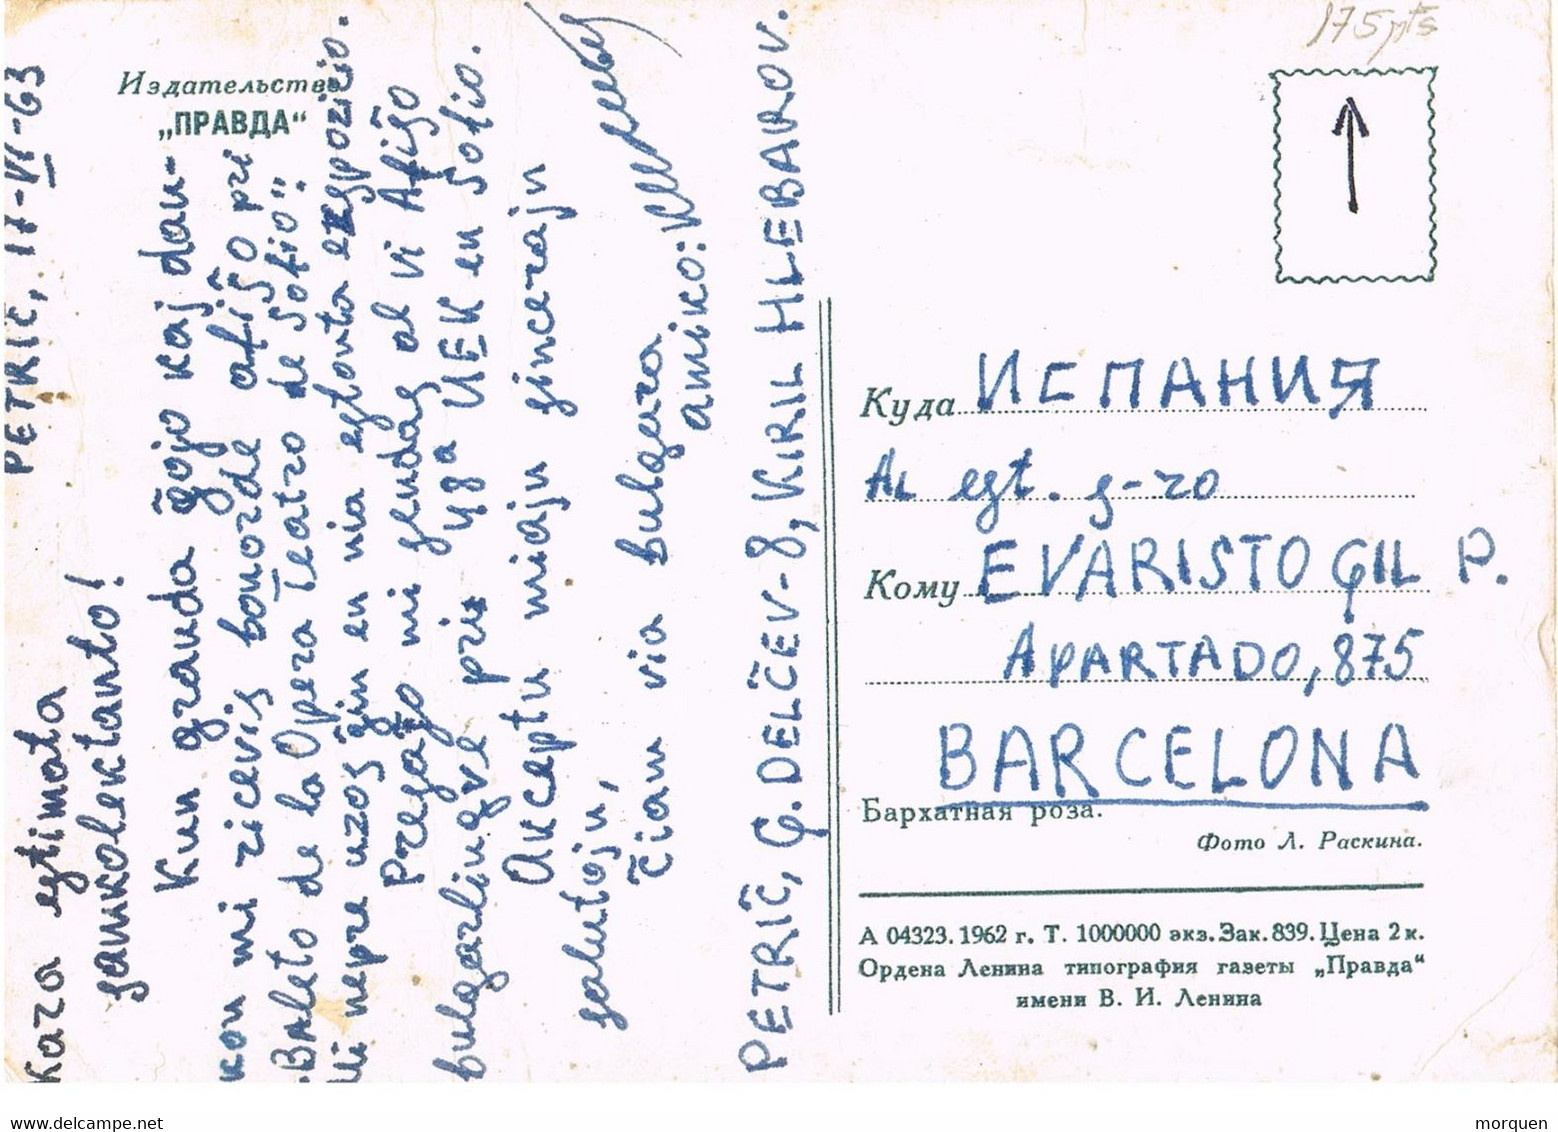 PETRIĈ, 17-VI-63
Kara estimata
samkolektanto!
Kun granda ĝojo kaj dan-
kon mi ricevis bonorde afiŝo pri
"Baleto de la Opera Teatro de Sofio".
Ĝi nepre uzos ĝin en nia estonta ekspozicio.
Pregaĵo mi sendas al vi Afiŝo
bulgarlingve pri 48a UEK en Sofio.
Akceptu miajn sincerajn
salutojn,
Ĉiam via bulgara
amiko:
PETRIĈ, G. DELĈEV-8, KIRIL HLEBAROV.
Издательство
„ПРАВДА“
175 pts
Куда ИСПАНИЯ
AL est. s-ro
Кому EVARISTO GIL P.
APARTADO, 875
BARCELONA
Бархатная роза.
Фото Л. Раскина.
А 04323. 1962 г. Т. 1000000 экз. Зак. 839. Цена 2 к.
Ордена Ленина типография газеты „Правда“
имени В. И. Ленина
www.delcampe.net
morquen